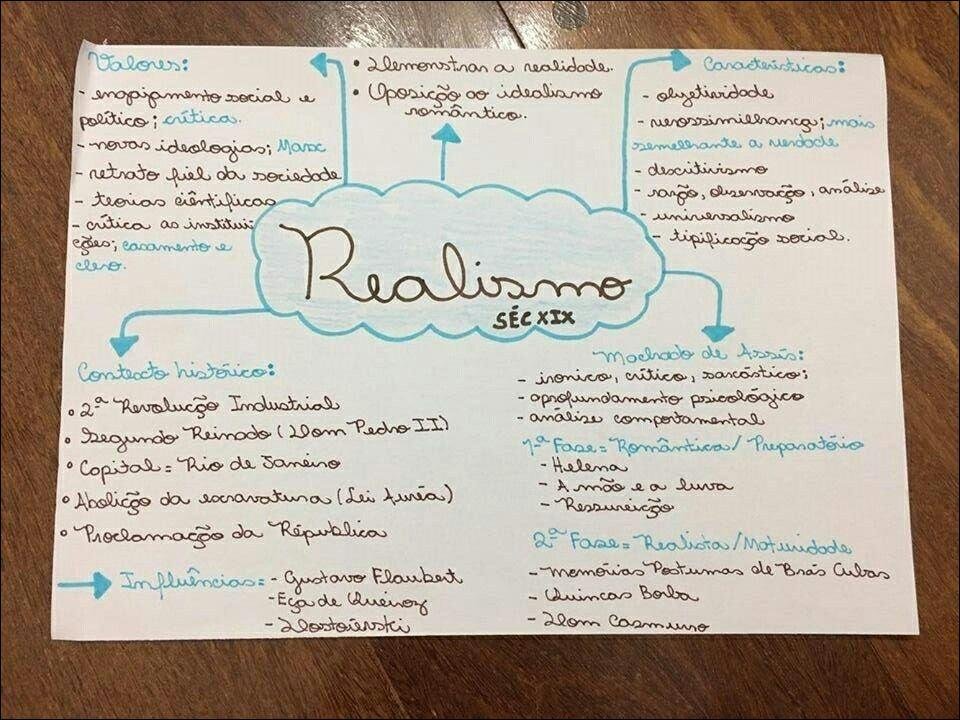 Valores:
- engajamento social e
político; crítica.
- novas ideologias; Marx
- retrato fiel da sociedade
- teorias científicas
- crítica as institui
ções; casamento e
clero.
• Demonstrar a realidade.
• Oposição ao idealismo
romântico.
Características:
- objetividade
- verossimilhança; mais
semelhante a verdade
- descritivismo
- razão, observação, análise
- universalismo
- tipificação social.
Realismo
SÉC XIX
Contexto histórico:
• 2ª Revolução Industrial
• Segundo Reinado (Dom Pedro II)
• Capital = Rio de Janeiro
• Abolição da escravatura (Lei Auréa)
• Proclamação da Répública
Influências = - Gustavo Flaubert
- Eça de Queiroz
- Dostoiévski
Machado de Assis:
- ironico, crítico, sarcástico;
- aprofundamento psicológico
- análize comportamental
1ª Fase = Romântica / Preparatório
- Helena
- A mão e a luva
- Ressureição
2ª Fase = Realista / Maturidade
- Memórias Postumas de Brás Cubas
- Quincas Borba
- Dom Casmurro